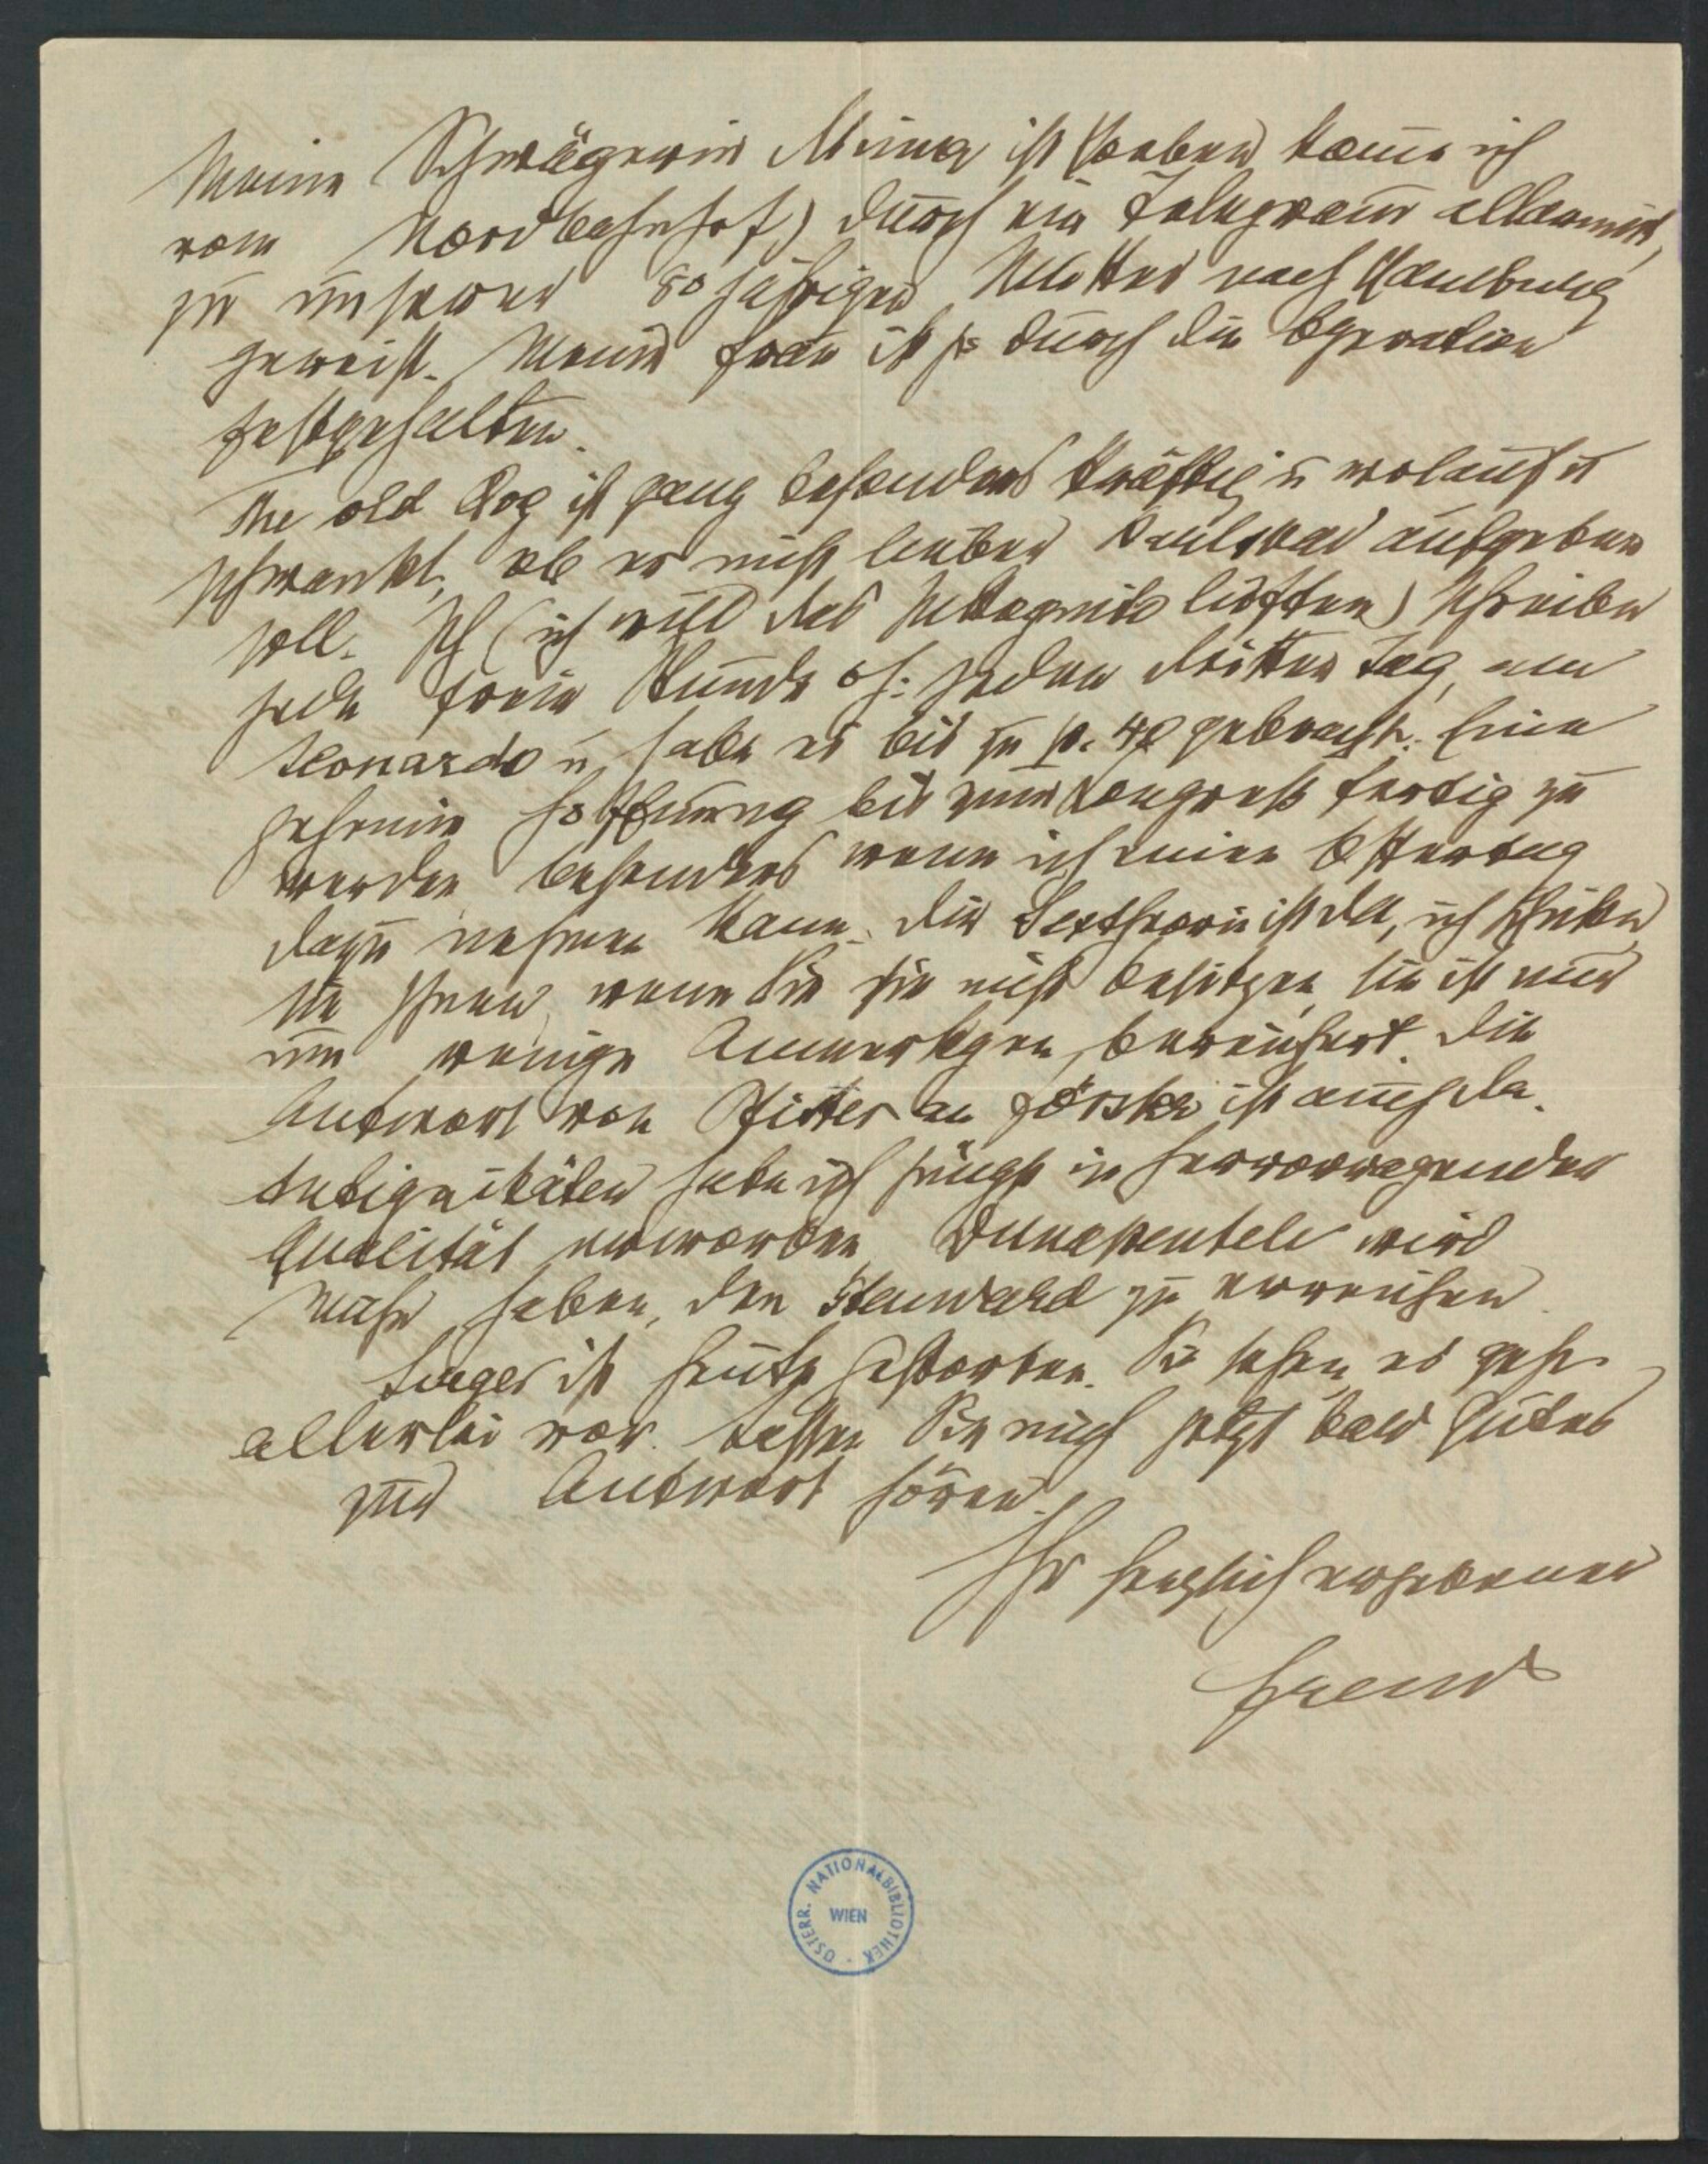 Meine Schwägerin Minna ist (soeben komme ich
vom Nordbahnhof) durch ein Telegramm allarmirt,
zu unserer 80jährigen Mutter nach Hamburg
gereist. Meine Frau ist ja durch die Operation
festgehalten.
The old dog ist ganz besonders kräftig u wolauf u
schwankt, ob er nicht lieber aufgeben
soll. Ich (ich will das Inkognito lüften) schreibe
jede freie Stunde dh: jeden dritten Tag, am
Leonardo u habe es bis zu p. 40 gebracht. Eine
geheime Hoffnung bis zum Congress fertig zu
werden besonders wenn ich einen Ostertag
dazu nehmen kann. Die Sextheorie ist da, ich schicke
sie Ihnen, wenn Sie sie nicht besitzen, sie ist nur
um wenige Anmerkgen bereichert. Die
Antwort von Pfister an Förster ist auch da.
Antiquitäten habe ich jüngst in hervorragender
Qualität erworben. Dunapentele wird
Mühe haben, den Standard zu erreichen.
Lueger ist heute gestorben. Sie sehen, es geht
allerlei vor. Lassen Sie mich jetzt bald Gutes
zur Antwort hören.
Ihr herzlich ergebener
Freud
ÖSTERR. NATIONALBIBLIOTHEK
WIEN